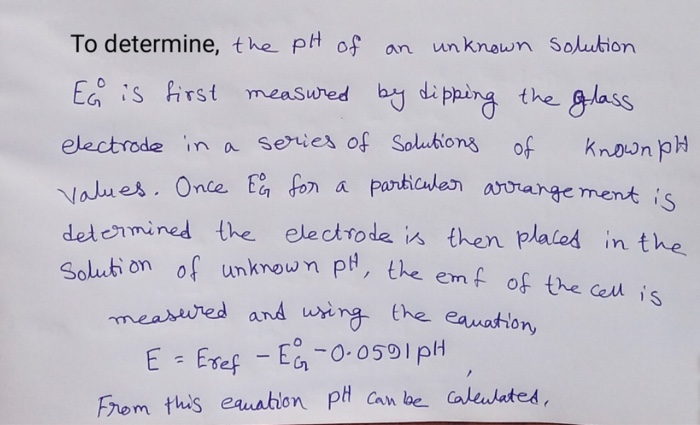 To determine, the pH of an unknown solution
E°G is first measured by dipping the glass
electrode in a series of solutions of known pH
values. Once E°G for a particular arrangement is
determined the electrode is then placed in the
Solution of unknown pH, the emf of the cell is
measured and using the equation,
E = Eref - E°G - 0.0591 pH,
From this equation pH can be calculated,